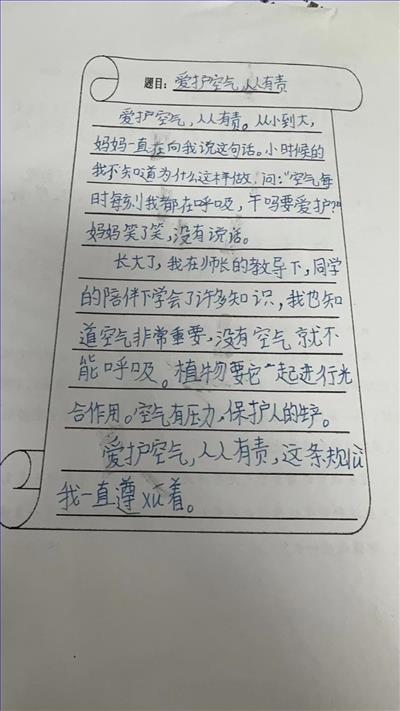 题目：爱护空气,人人有责
爱护空气,人人有责。从小到大,
妈妈一直在向我说这句话。小时候的
我不知道为什么这样做，问:"空气每
时每刻我都在呼吸，干吗要爱护?"
妈妈笑了笑,没有说话。
长大了，我在师长的教导下,同学
的陪伴下学会了许多知识，我也知
道空气非常重要,没有空气就不
能呼吸。植物要它一起进行光
合作用。空气有压力,保护人的生产。
爱护空气,人人有责,这条规lǜ
我一直遵xú着。